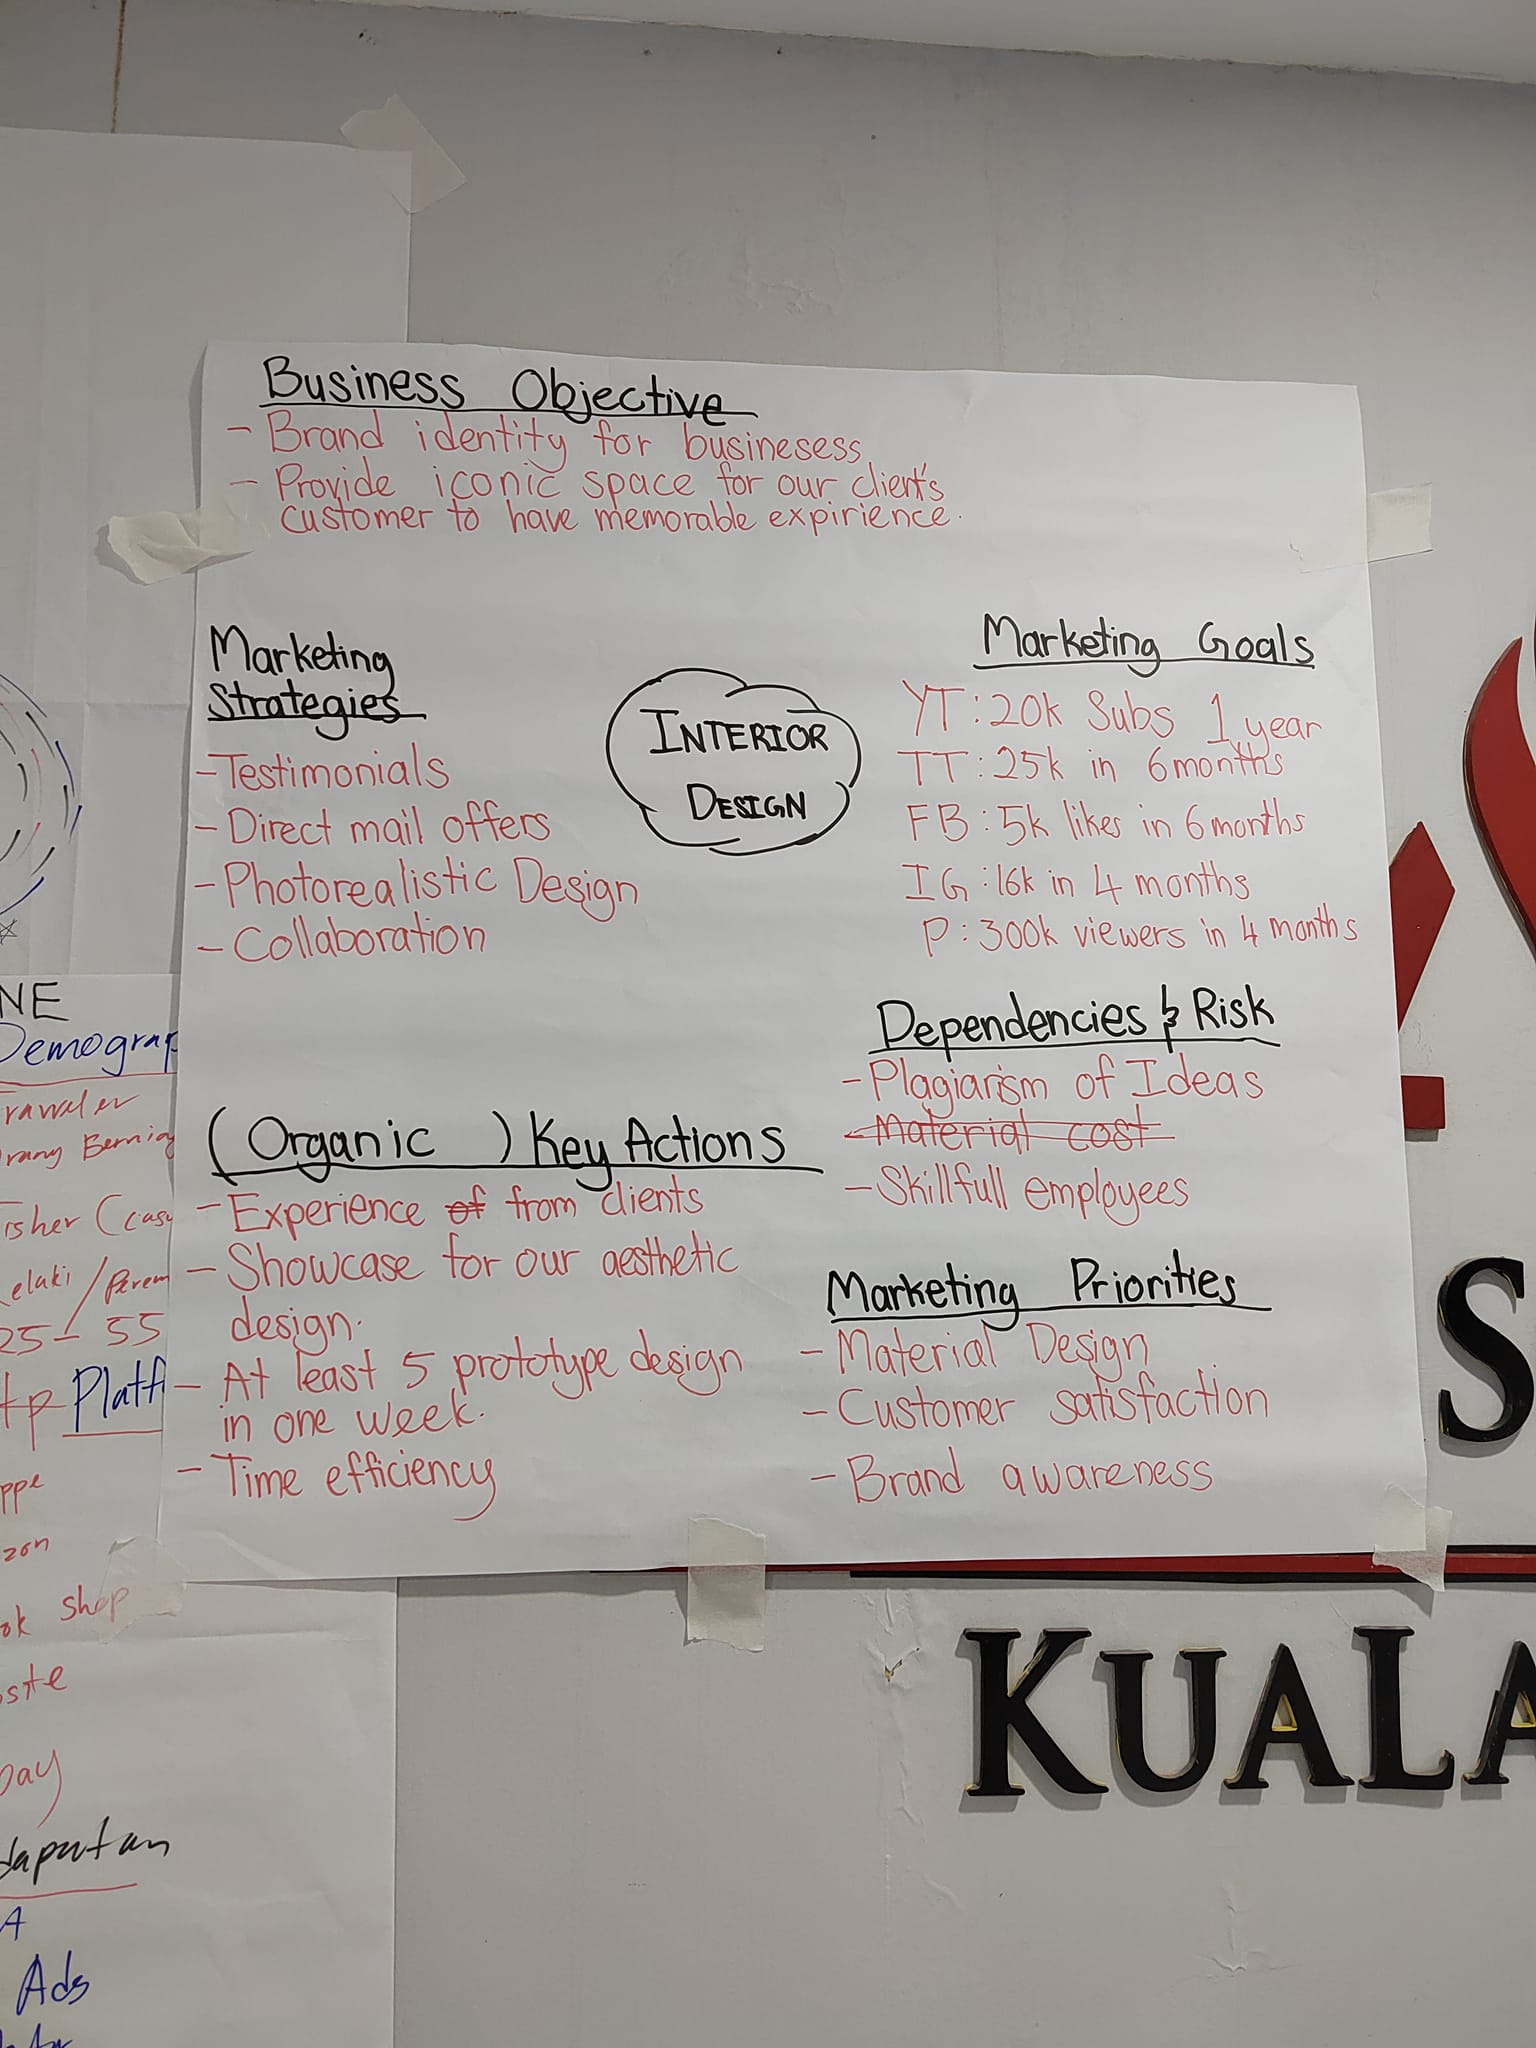 Business Objective
- Brand identity for businesess
- Provide iconic space for our client's
customer to have memorable expirience.
Marketing
Strategies
- Testimonials
- Direct mail offers
- Photorealistic Design
- Collaboration
INTERIOR
DESIGN
Marketing Goals
YT : 20k Subs 1 year
TT : 25k in 6 months
FB : 5k likes in 6 months
IG : 16k in 4 months
P : 300k viewers in 4 months
Dependencies & Risk
- Plagiarism of Ideas
- Material cost
- Skillfull employees
(Organic ) Key Actions
- Experience of from clients
- Showcase for our aesthetic
design.
- At least 5 prototype design
in one week.
- Time efficiency
Marketing Priorities
- Material Design
- Customer satisfaction
- Brand awareness
NE
Demograp
elaki / Perem
25 - 55
Platf
ppe
zon
ok shop
site
pay
dapatan
A
Ads
S
KUALA